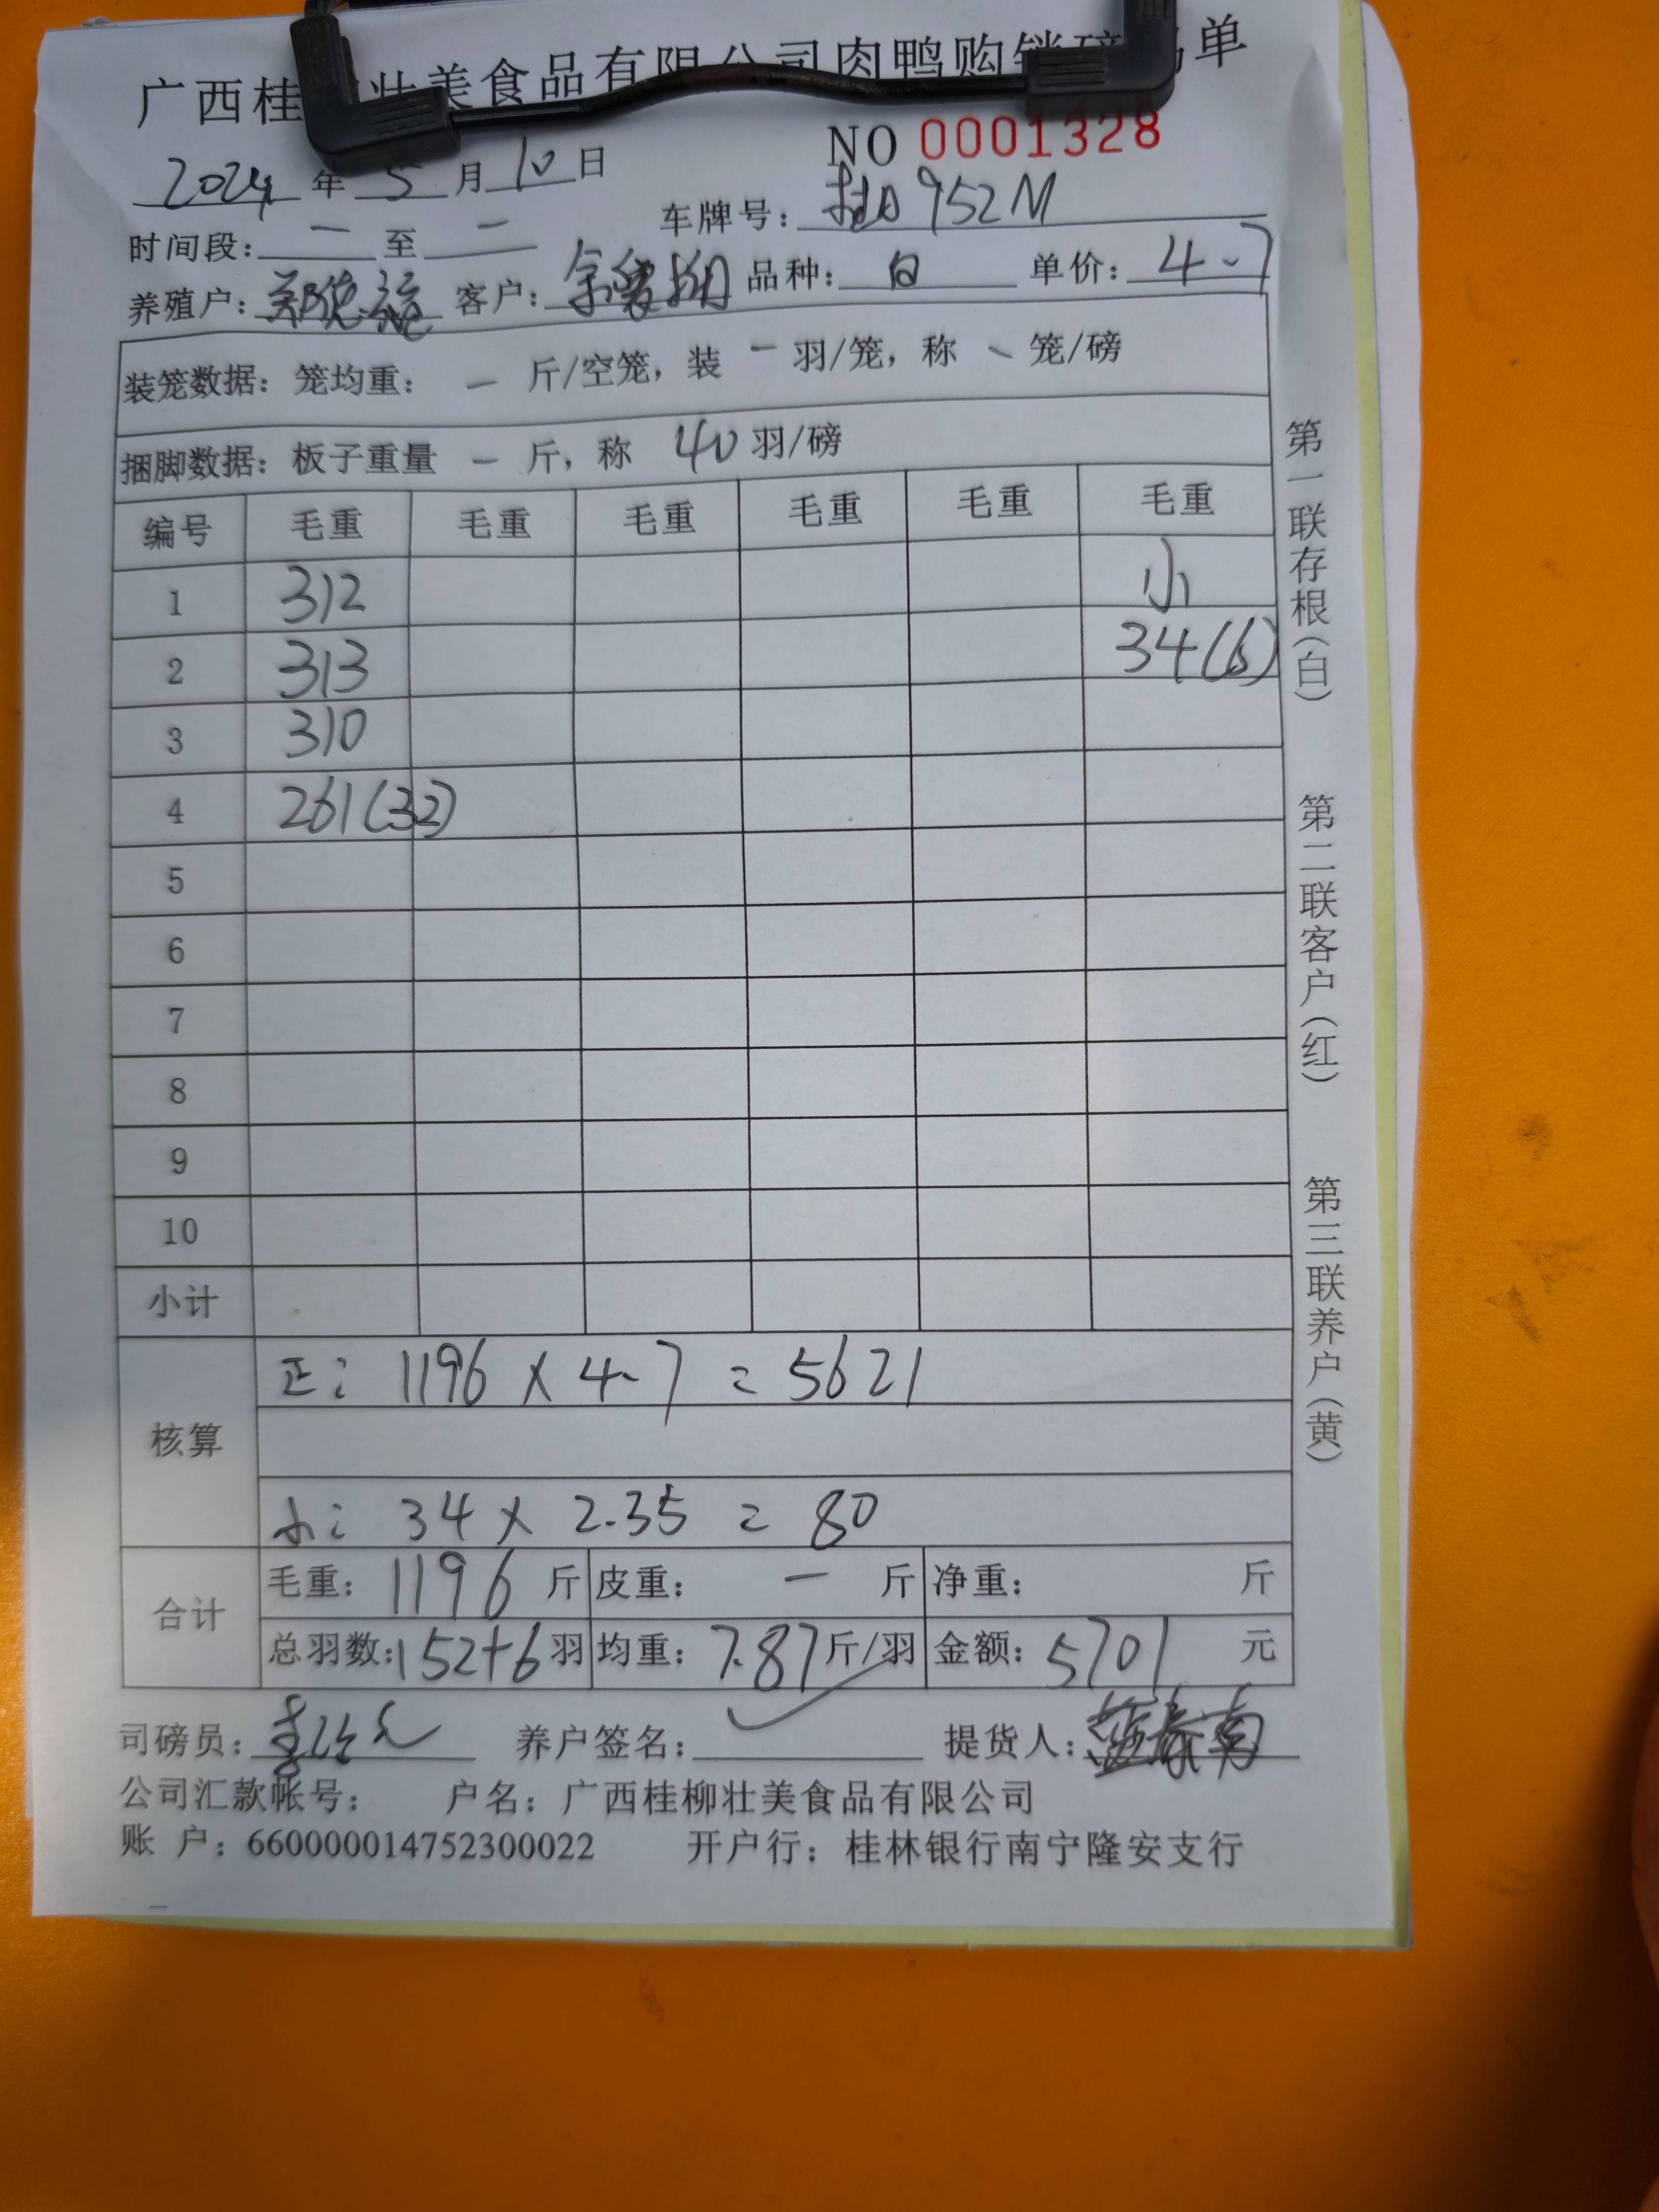 广西桂 壮美食品有限公司肉鸭购销磅 单
NO 0001328
2024年5月10日
车牌号: 桂A952M
时间段: 一 至 一
养殖户: 客户: 品种: 白 单价: 4.7
装笼数据: 笼均重: 一 斤/空笼, 装 一 羽/笼, 称 、 笼/磅
捆脚数据: 板子重量 一 斤, 称 40 羽/磅
编号 毛重 毛重 毛重 毛重 毛重 毛重
1 312 小
2 313 34(6)
3 310
4 261(32)
5
6
7
8
9
10
小计
核算
正: 1196 × 4.7 = 5621
小: 34 × 2.35 = 80
合计
毛重: 1196 斤 皮重: 一 斤 净重: 斤
总羽数: 152+6 羽 均重: 7.87 斤/羽 金额: 5701 元
司磅员: 养户签名: 提货人: 蓝春南
公司汇款帐号: 户名: 广西桂柳壮美食品有限公司
账 户: 660000014752300022 开户行: 桂林银行南宁隆安支行
第一联存根(白)
第二联客户(红)
第三联养户(黄)